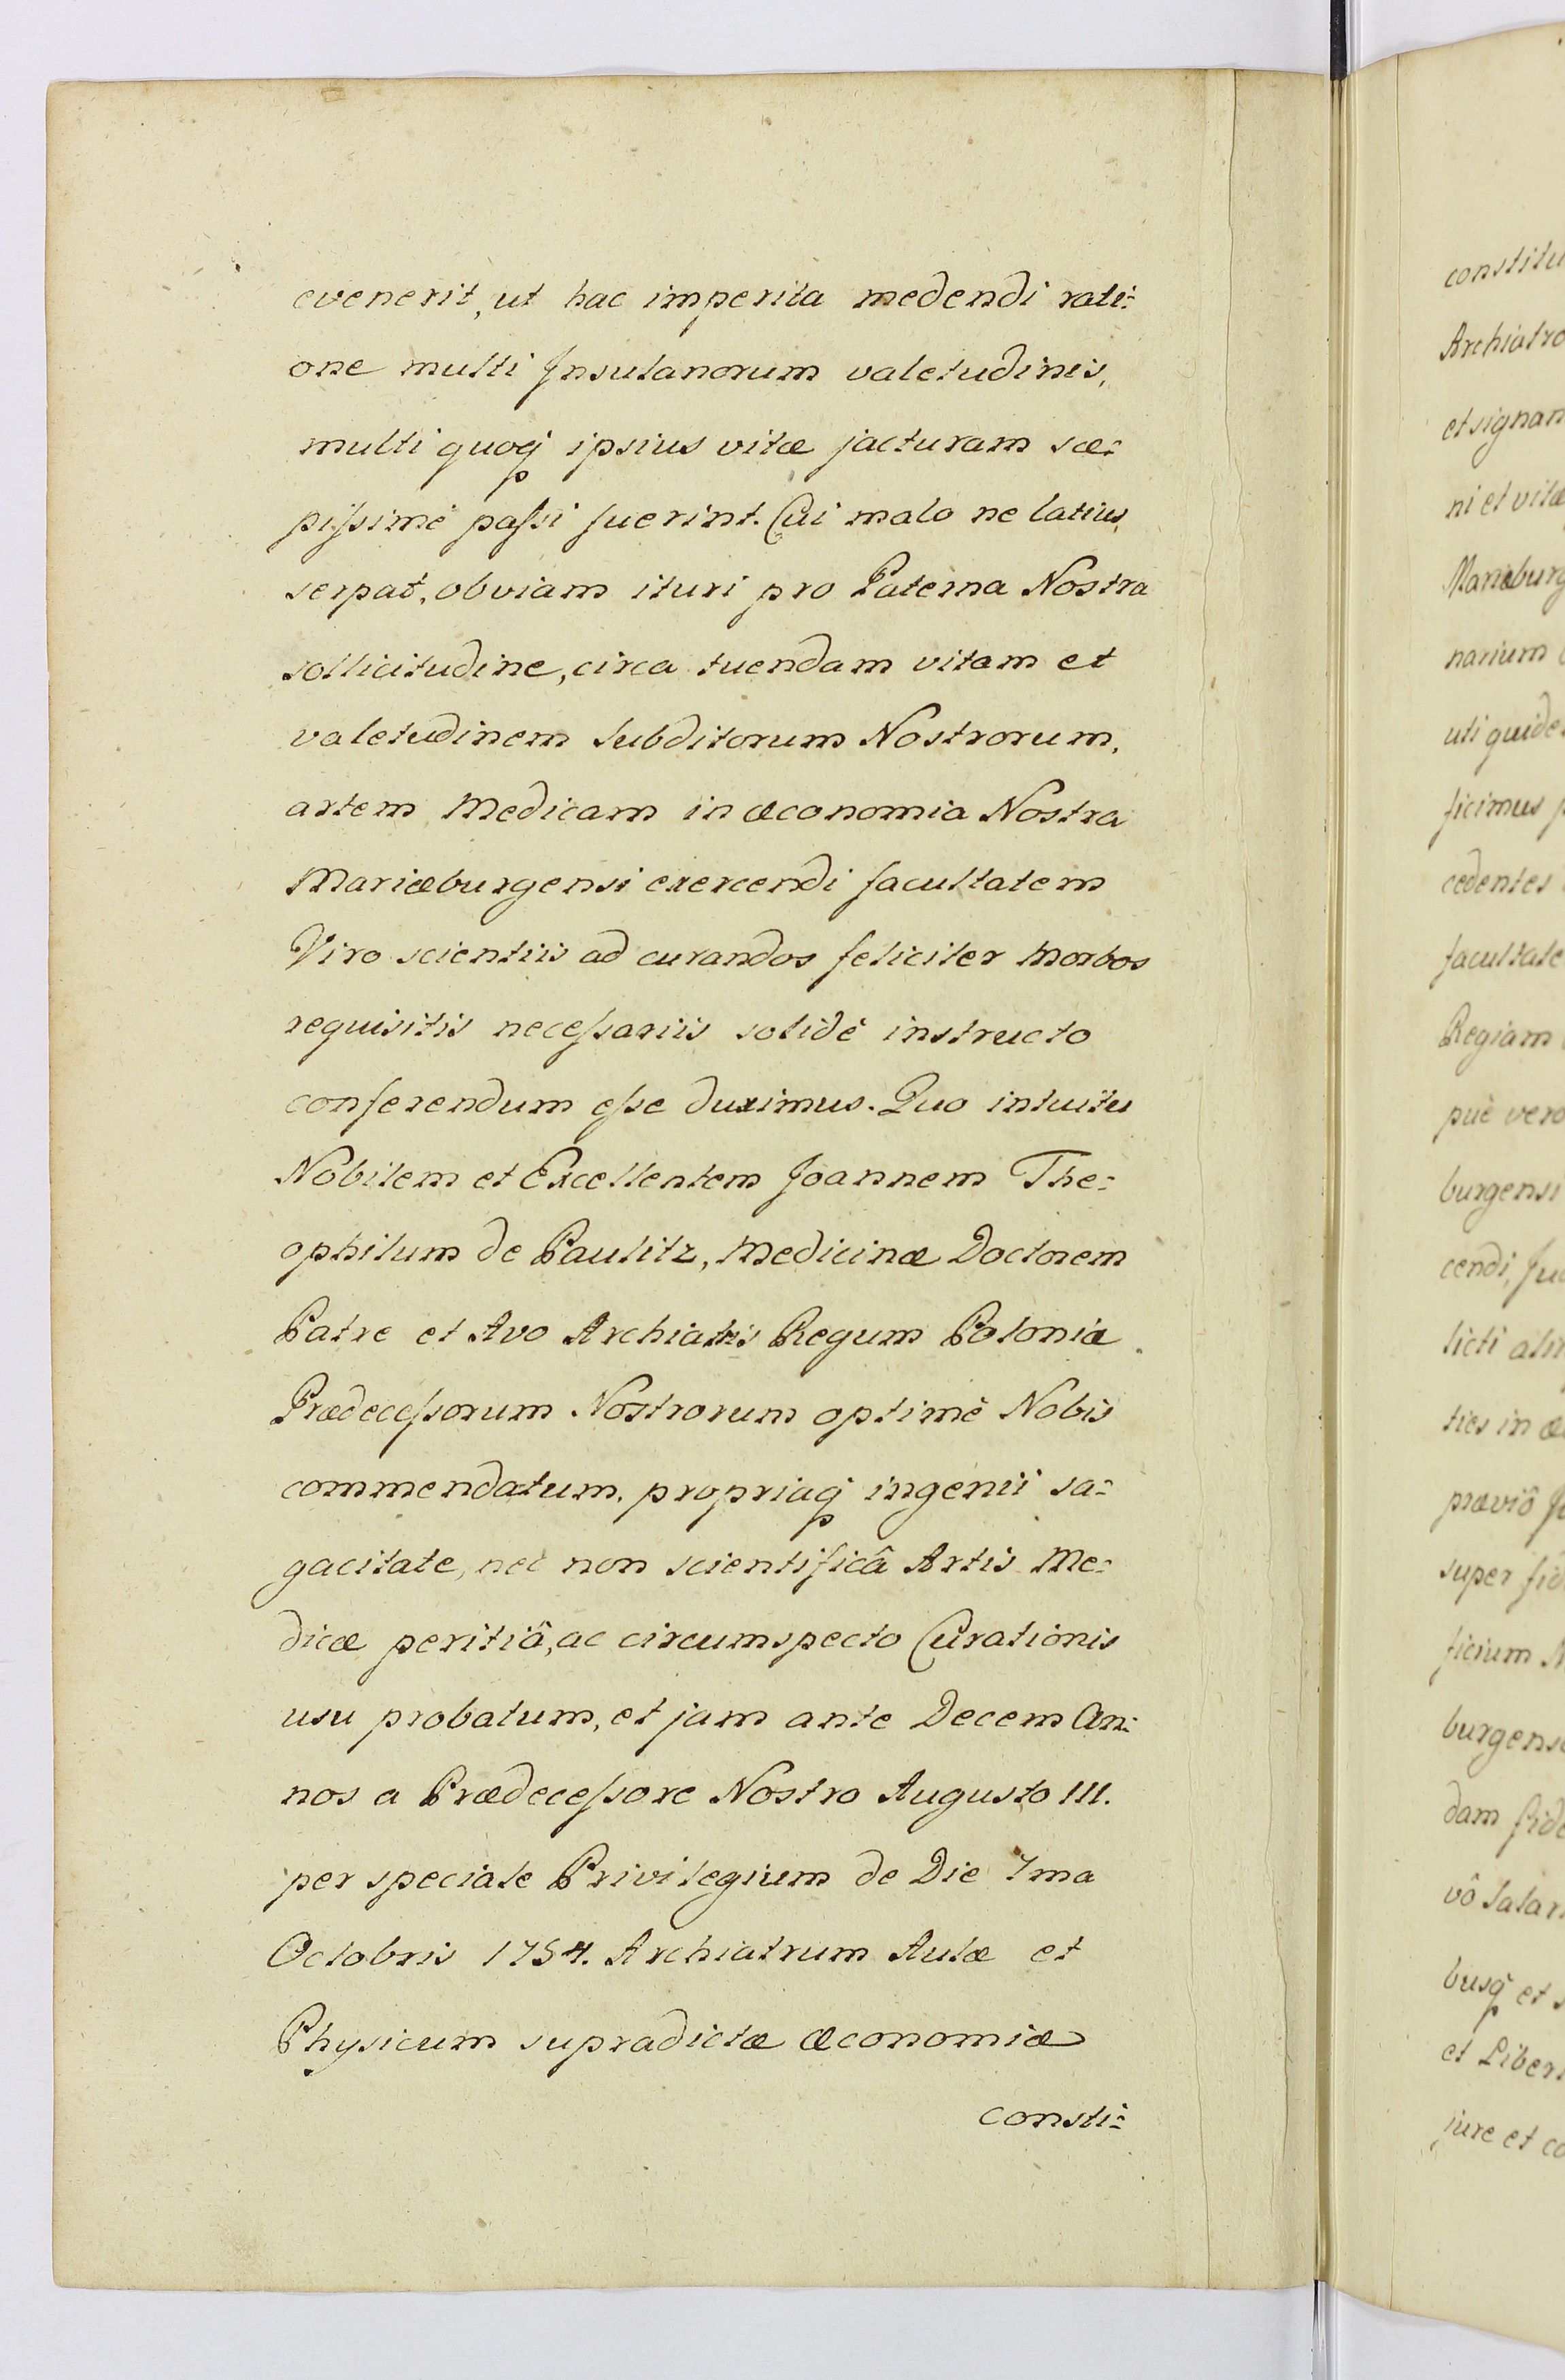 evenerit, ut hac imperita medendi rati:
one multi Insulanorum valetudinis,
multi quoq; ipsius vitæ jacturam sæ:
pissimè passi fuerint. Cui malo ne latius
serpat, obviam ituri pro Paterna Nostra
sollicitudine, circa tuendam vitam et
valetudinem Subditorum Nostrorum,
artem Medicam in œconomia Nostra
Mariæburgensi exercendi facultatem
Viro scientiis ad curandos feliciter Morbos
requisitis necessariis solidè instructo
conferendum esse duximus. Quo intuitu
Nobilem et Excellentem Joannem The:
ophilum de Paulitz, Medicinæ Doctorem
Patre et Avo Archiatris Regum Poloniæ
Prædecessorum Nostrorum optimè Nobis
commendatum, propriaq; ingenii sa:
gacitate, nec non scientificâ Artis Me:
dicæ peritiâ, ac circumspecto Curationis
usu probatum, et jam ante Decem An:
nos a Prædecessore Nostro Augusto III.
per speciale Privilegium de Die 7ma
Octobris 1754. Archiatrum Aulæ et
Physicum supradictæ œconomiæ
consti:
constitu
Archiatro
et signan
ni et vitæ
Mariæburg
narium
uti quide
ficimus p
cedentes
facultate
Regiam
puè vero
burgensi
cendi, Ju
licti
ties in œ
præviô
super fid
ficium N
burgens
dam fide
vô Salar
busq; et s
et Liber
jure et co